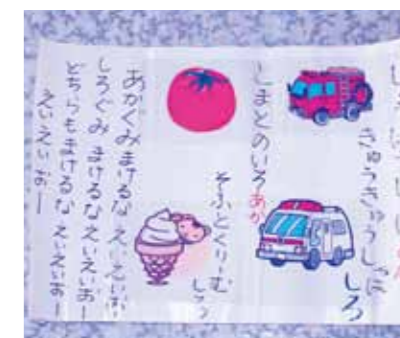 きゅうきゅうしゃは
しろ
とまとのいろ あか
そふとくりーむ
しろ
あかぐみ まけるな えいえいおー
しろぐみ まけるな えいえいおー
どちらもまけるな えいえいおー
えいえいおー